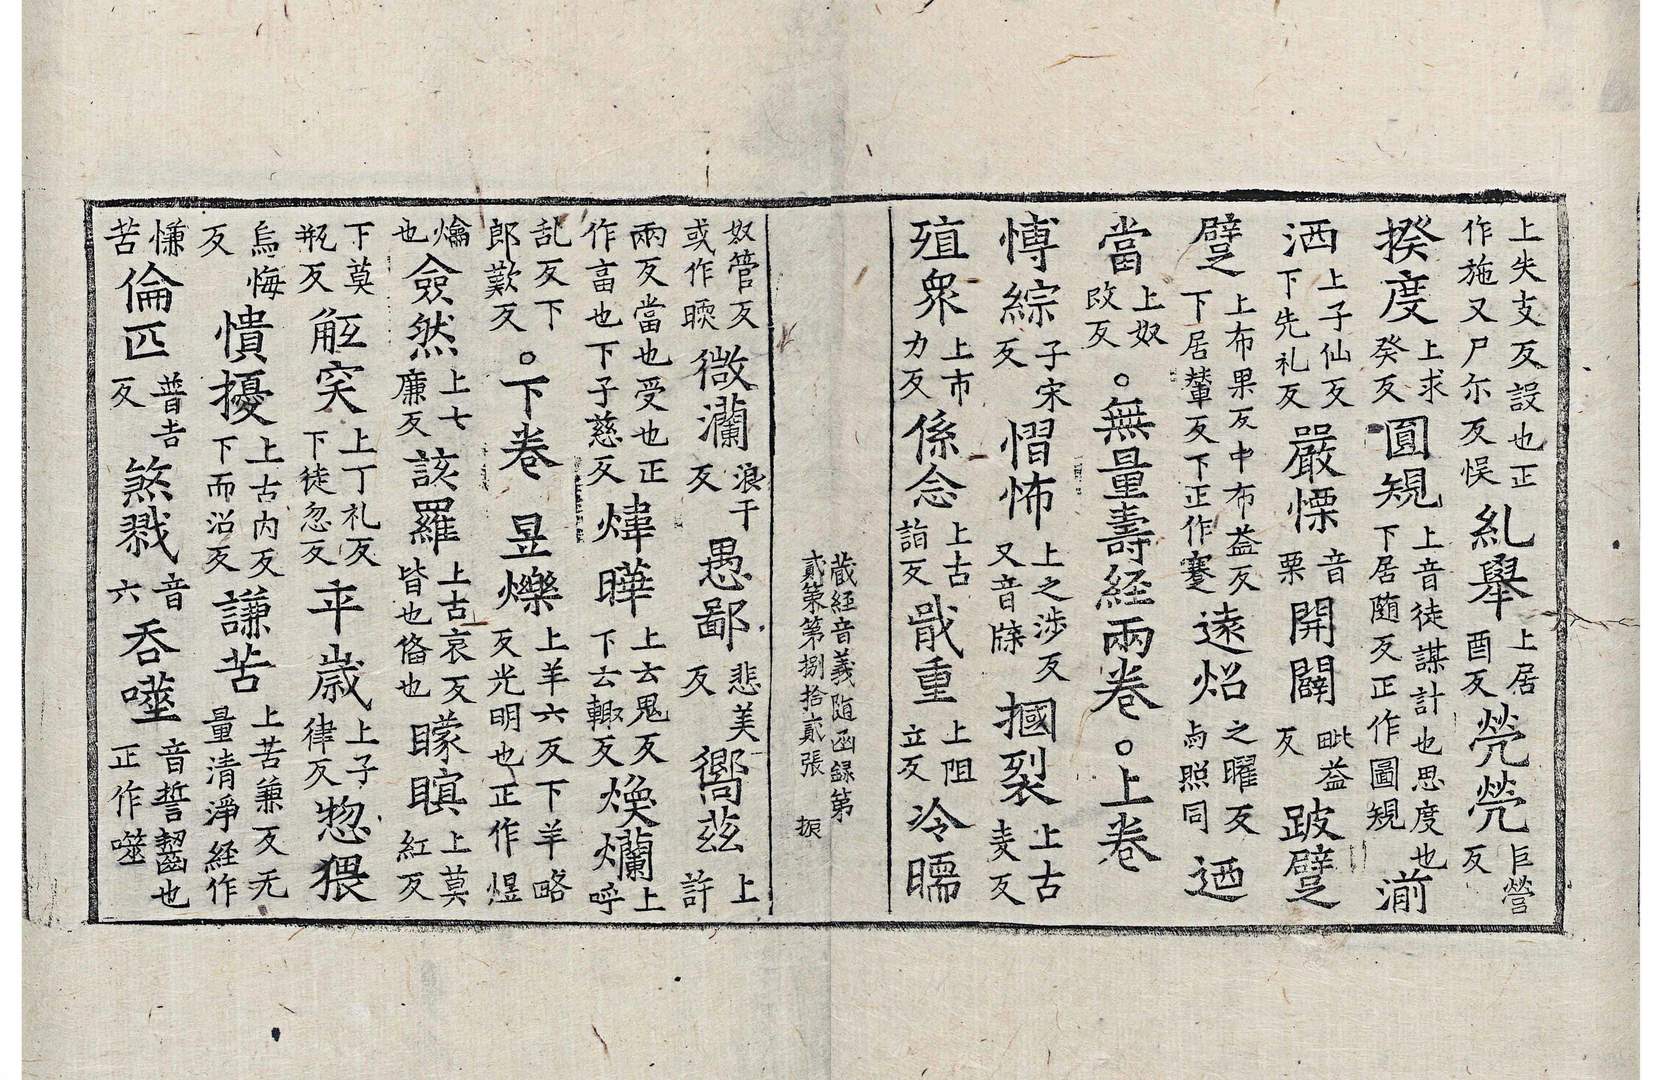 上失支反設也正作施又尸尓反悮糺舉上居酉反㷀㷀巨營反
揆度上求癸反圎規上音徒謀計也思度也下居随反正作圖規湔
洒上子仙反下先礼反嚴慄音栗開闢毗益反跛躄
躄上布果反中布益反下居輦反下正作蹇逺炤之曜反与照同迺
當上奴改反。無量壽経兩卷。上卷
愽綜子宋反慴怖上之涉反又音牒摑裂上古麦反
殖衆上市力反係念上古詣反戢重上阻立反冷㬉
蔵経音義随函録第貳第第捌拾貳張 振
奴管反或作㬉微瀾浪干反愚鄙悲美反嚮茲上許
兩反當也受也正作畗也下子慈反煒曄上云鬼反下云輙反煥爛上呼
乱反下郎歎反。下卷 昱爍上羊六反下羊略反光明也正作煜
爚也僉然上七廉反該羅上古哀反皆也俻也矇瞑上莫紅反
下莫瓶反觝突上丁礼反下徒忽反平歲上子律反惣猥
烏悔反憒擾上古内反下而沼反謙苦上苦兼反无量清淨経作
慊苦倫匹普吉反煞戮音六吞噬音誓齧也正作噬